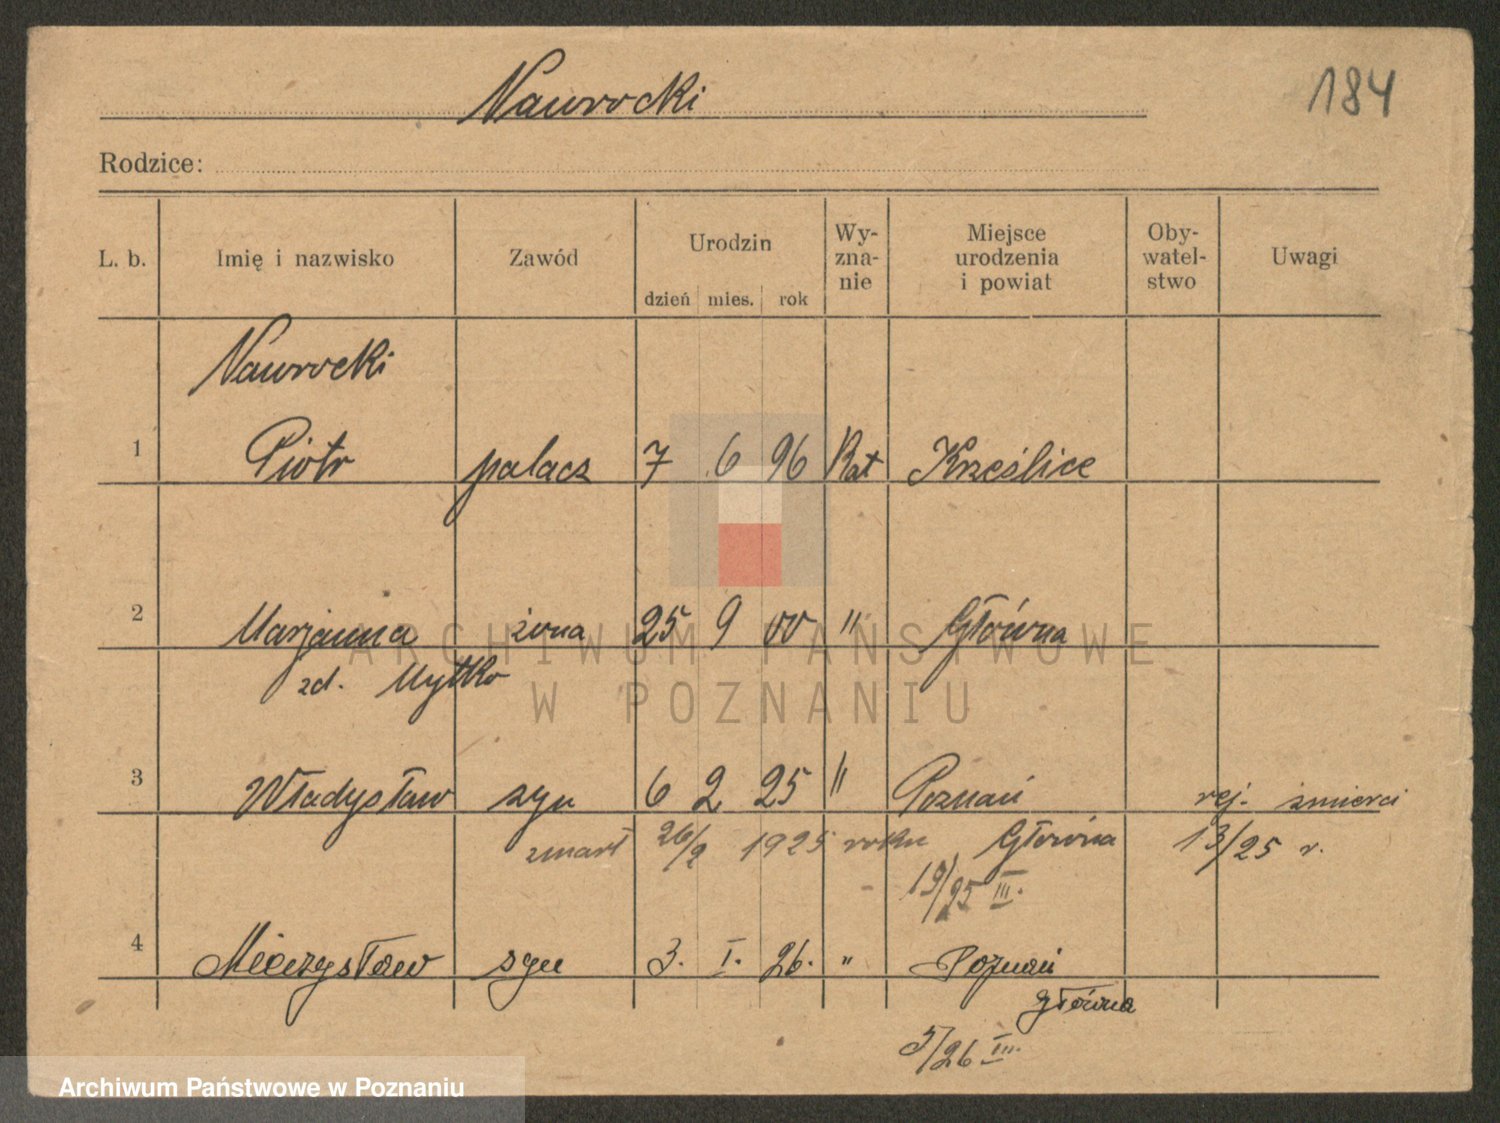 Nawrocki
184
Rodzice:
L. b. Imię i nazwisko Zawód Urodzin dzień mies. rok Wy-zna-nie Miejsce urodzenia i powiat Oby-watel-stwo Uwagi
Nawrocki
1 Piotr palacz 7 6 96 Kat Krześlice
2 Marjanna żona 25 9 00 " Główna
zd. Mytko
ARCHIWUM PAŃSTWOWE
W POZNANIU
3 Władysław syn 6 2 25 " Poznań rej. śmierci
zmarł 26/2 1925 roku Główna 13/25 r.
19/25 III.
4 Mieczysław syn 3. I. 26. " Poznań
Główna
5/26 III.
Archiwum Państwowe w Poznaniu